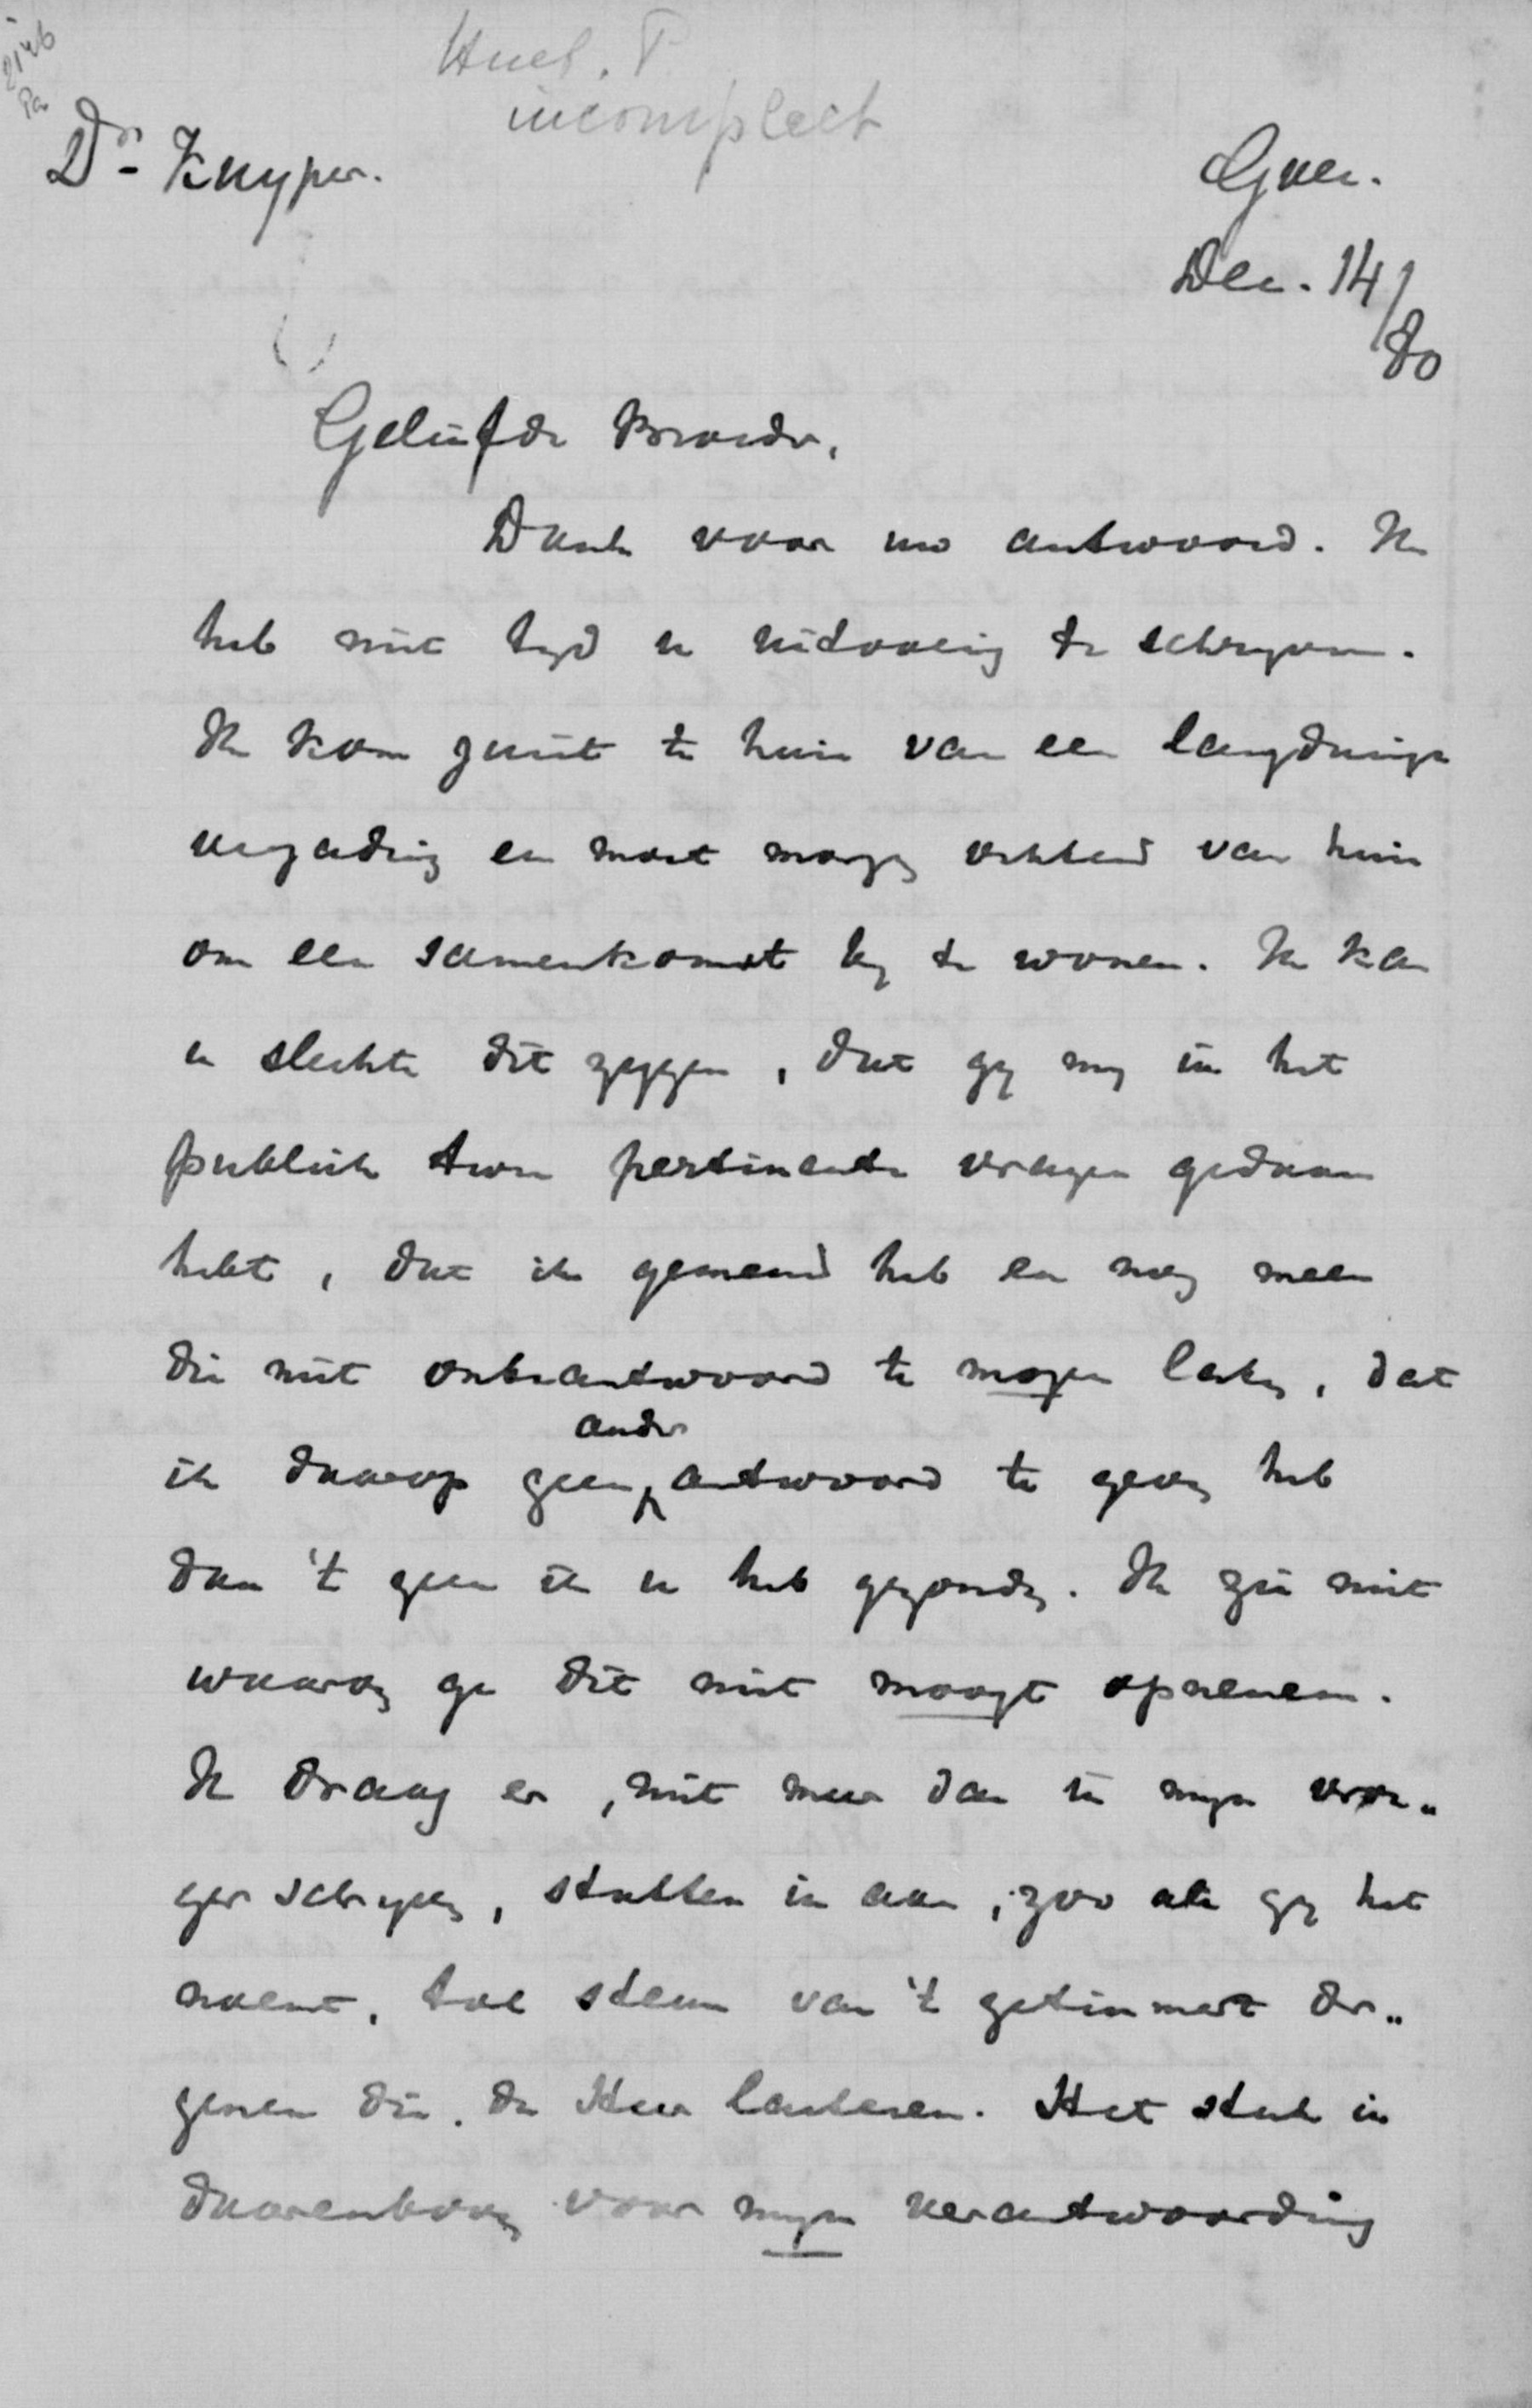 2146
Pa
Huet. P.
incompleet
Dr. Kuyper.
Goes.
Dec. 14/
80
Geliefde Broeder,
Dank voor uw antwoord. Ik
heb niet tyd u uitvoerig te schryven.
Ik kom zuist te huis van een langdurige
vergadering en moet morgen ochtend van huis
om een samenkomst by te wonen. Ik kan
u slechts dit zeggen, dat gy my in het
publiek twee pertinente vragen gedaan
hebt, dat ik gemeend heb en nog meen
die niet onbeantwoord te mogen laten, dat
ander
ik daarop geen antwoord te geven heb
dan 't geen ik u heb gezonden. Ik zie niet
waarom ge dit niet moogt opnemen.
Ik draag er, niet meer dan in myn vroe„
ger schryven, stutten in aan, zoo als gy het
noemt, tot steun van 't getimmert der„
genen die de Heer lasteren. Het stuk is
daarenboven voor myn verantwoording